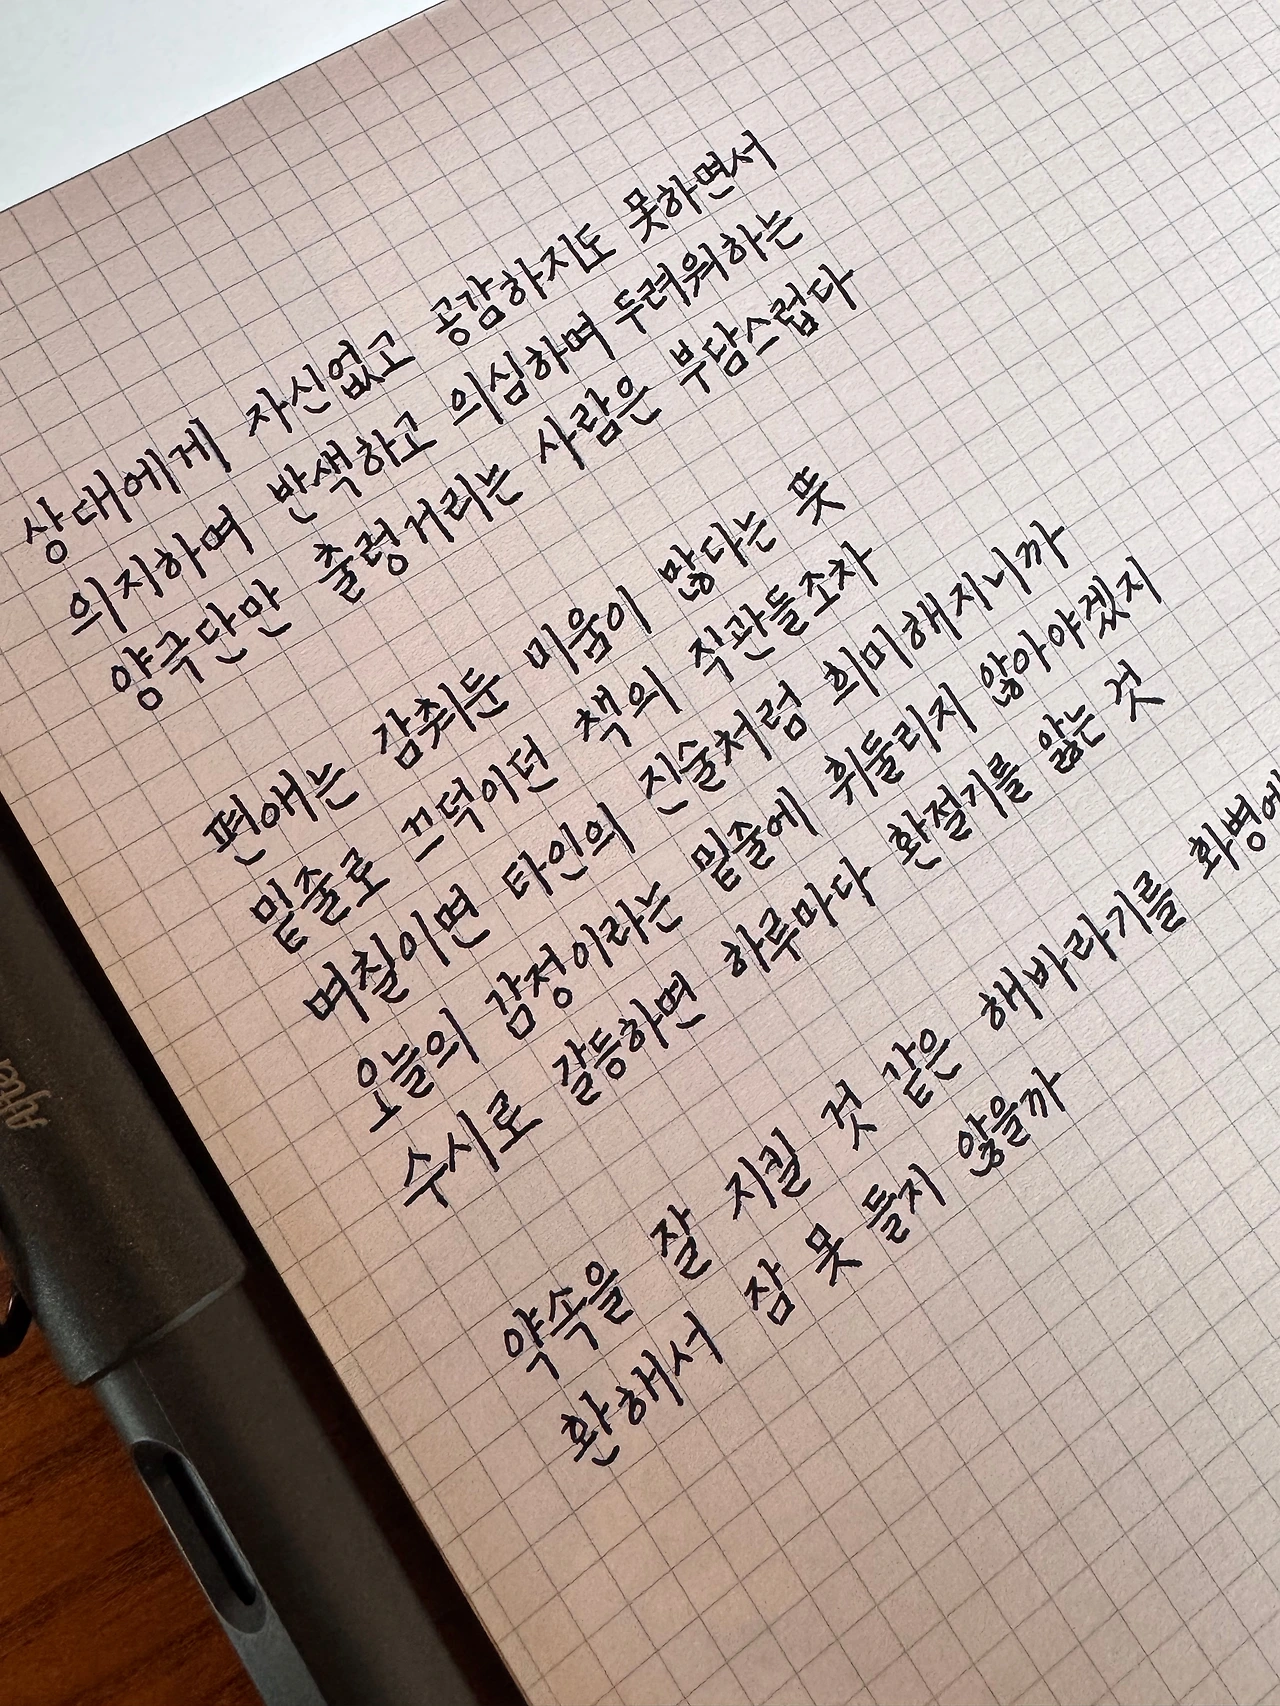 상대에게 자신없고 공감하지도 못하면서
의지하며 반색하고 의심하며 두려워하는
양극단만 출렁거리는 사람은 부담스럽다
편애는 감춰둔 미움이 많다는 뜻
밑줄로 끄덕이던 책의 직관들조차
며칠이면 타인의 진술처럼 희미해지니까
오늘의 감정이라는 밑줄에 휘둘리지 않아야겠지
수시로 갈등하면 하루마다 환절기를 앓는 것
약속을 잘 지킬 것 같은 해바라기를 화병에
환해서 잠 못 들지 않을까